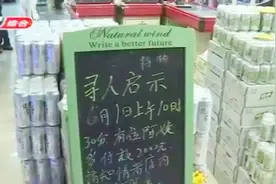 综合
Natural wind
Write a better future
寻人启示
6月1日上午10时
30分.有位阿姨
多付款3000元
请知情者店内